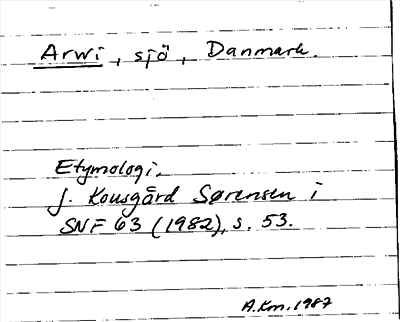 Arwi, sjö, Danmark.
Etymologi.
J. Kousgård Sørensen i
SNF 63 (1982), s. 53.
A.Km. 1987